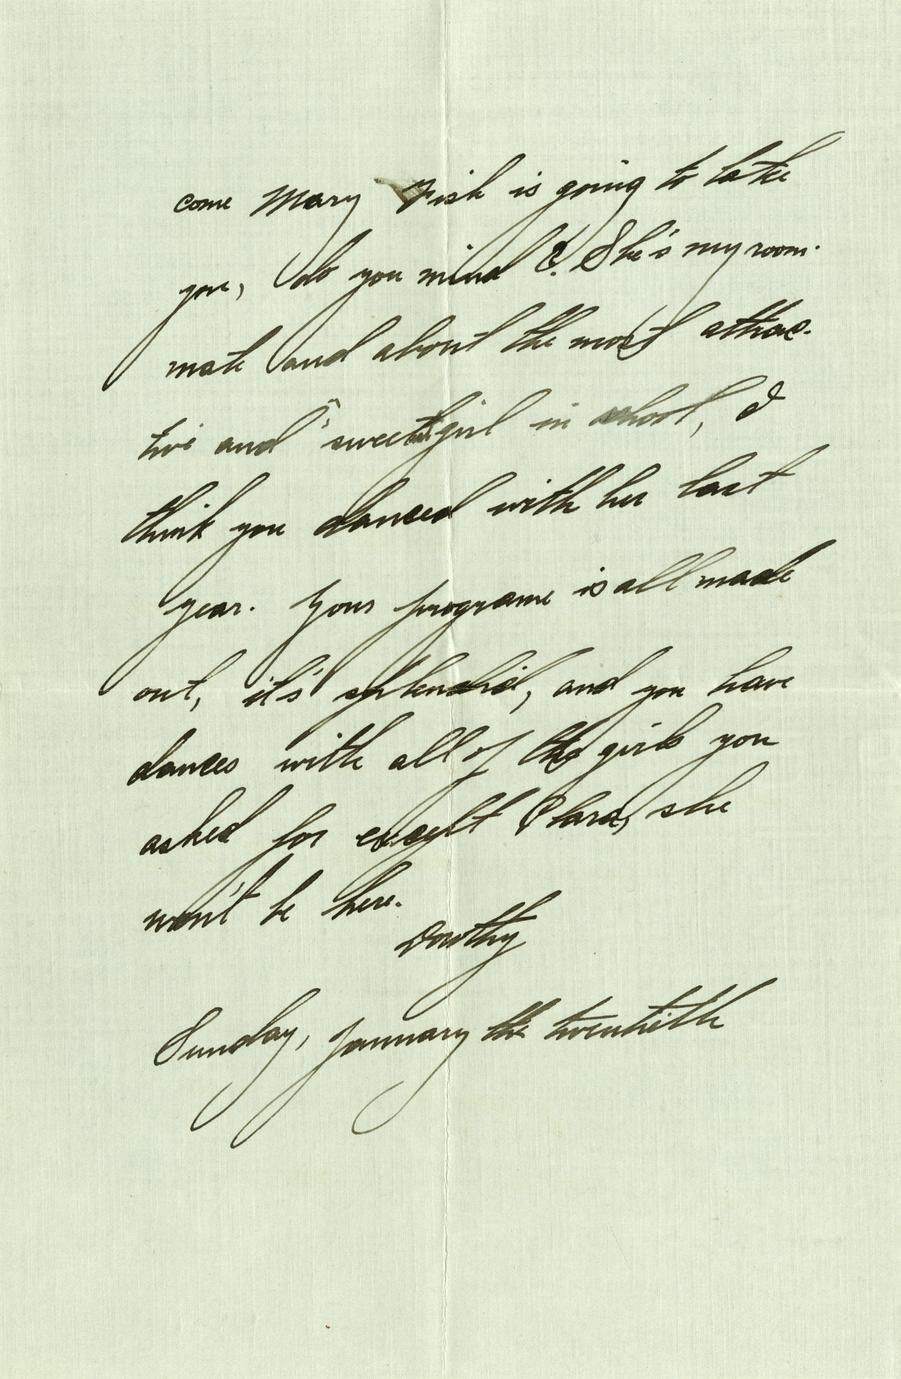 come Mary Fish is going to take
you, do you mind? She's my room-
mate and about the most attrac-
tive and "sweet" girl in school, I
think you danced with her last
year. Your programe is all made
out, it's splendid, and you have
dances with all of the girls you
asked for except Clara, she
won't be here.
Dorothy
Sunday, January the twentieth